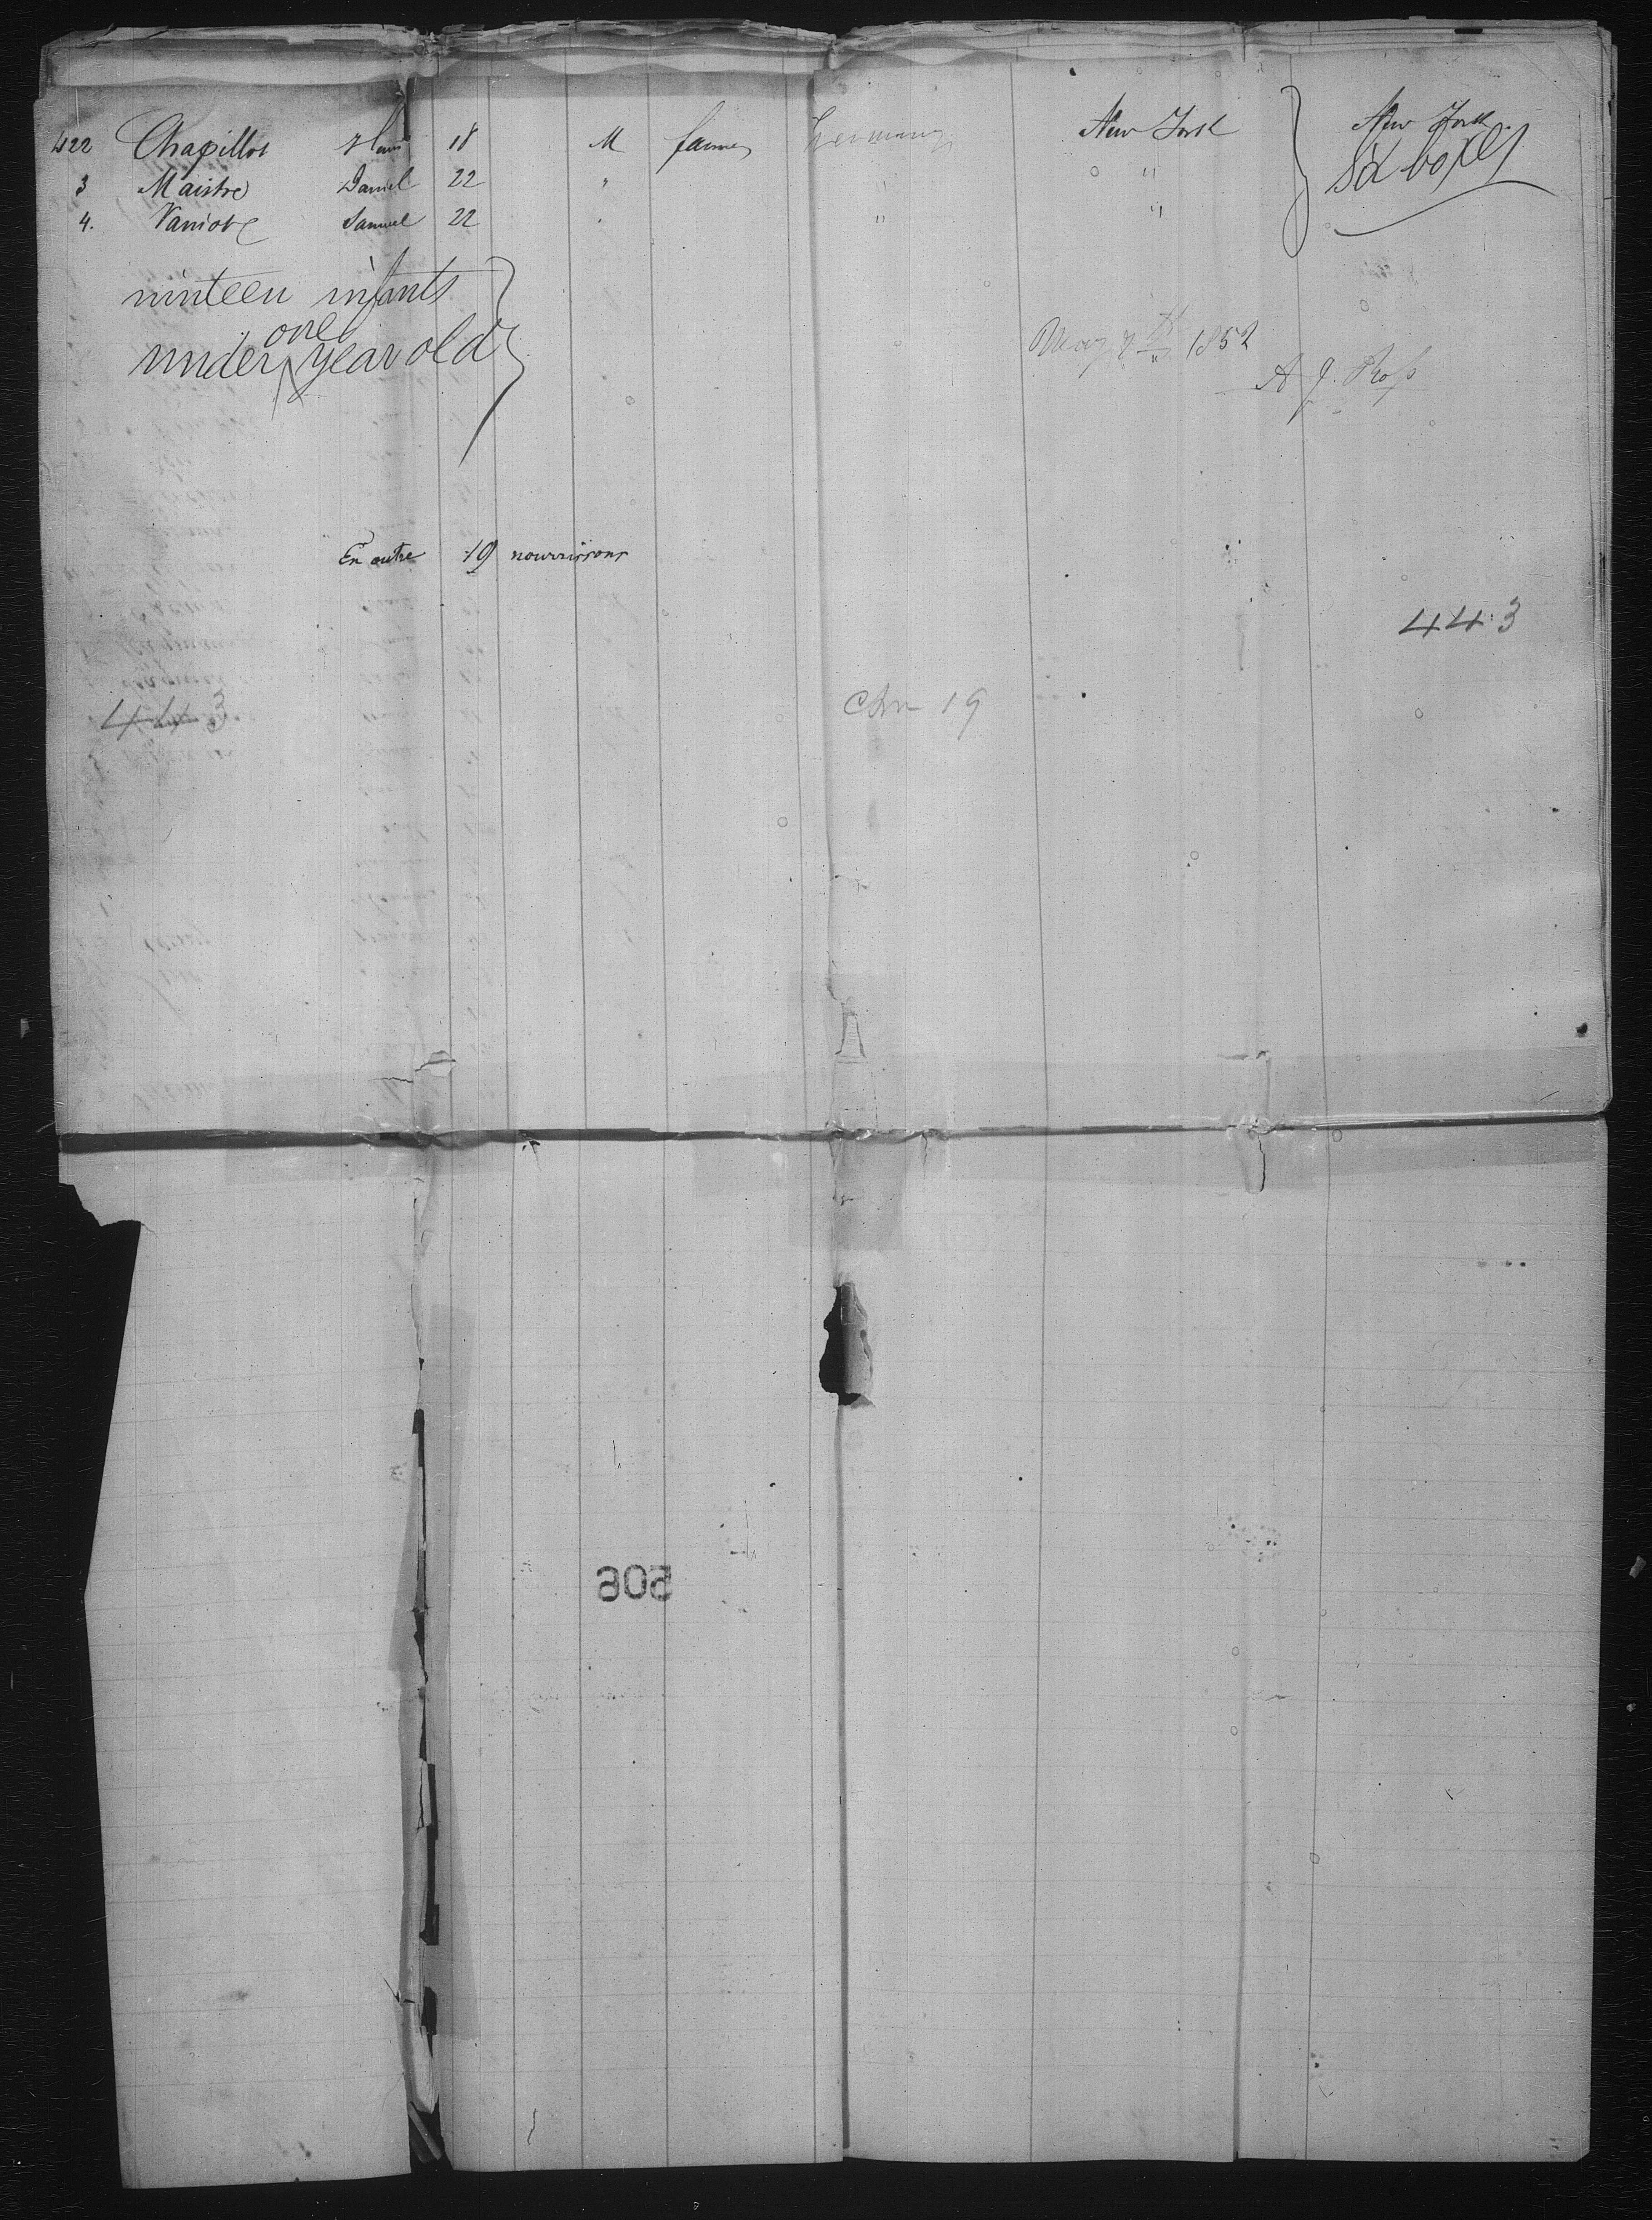 422 Chapillot 18 M farmer Germany New York New York
3 Maistre Daniel 22 " " " six boxes
4. Samuel 22 " " "
ninteen infants
one
under year old
May 7th 1852
A J. Ross
En outre 19 nourrissons
443
443
19
505